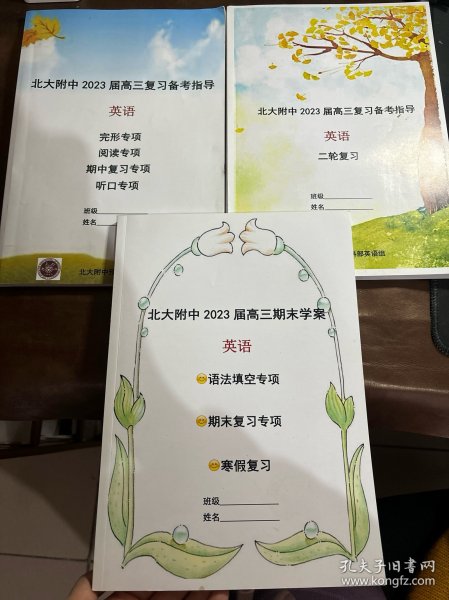 北大附中 2023 届高三复习备考指导
英语
完形专项
阅读专项
期中复习专项
听口专项
班级
姓名
北大附中
北大附中 2023 届高三复习备考指导
英语
二轮复习
班级
姓名
部英语组
北大附中 2023 届高三期末学案
英语
语法填空专项
期末复习专项
寒假复习
班级
姓名
孔夫子旧书网
www.kongfz.com